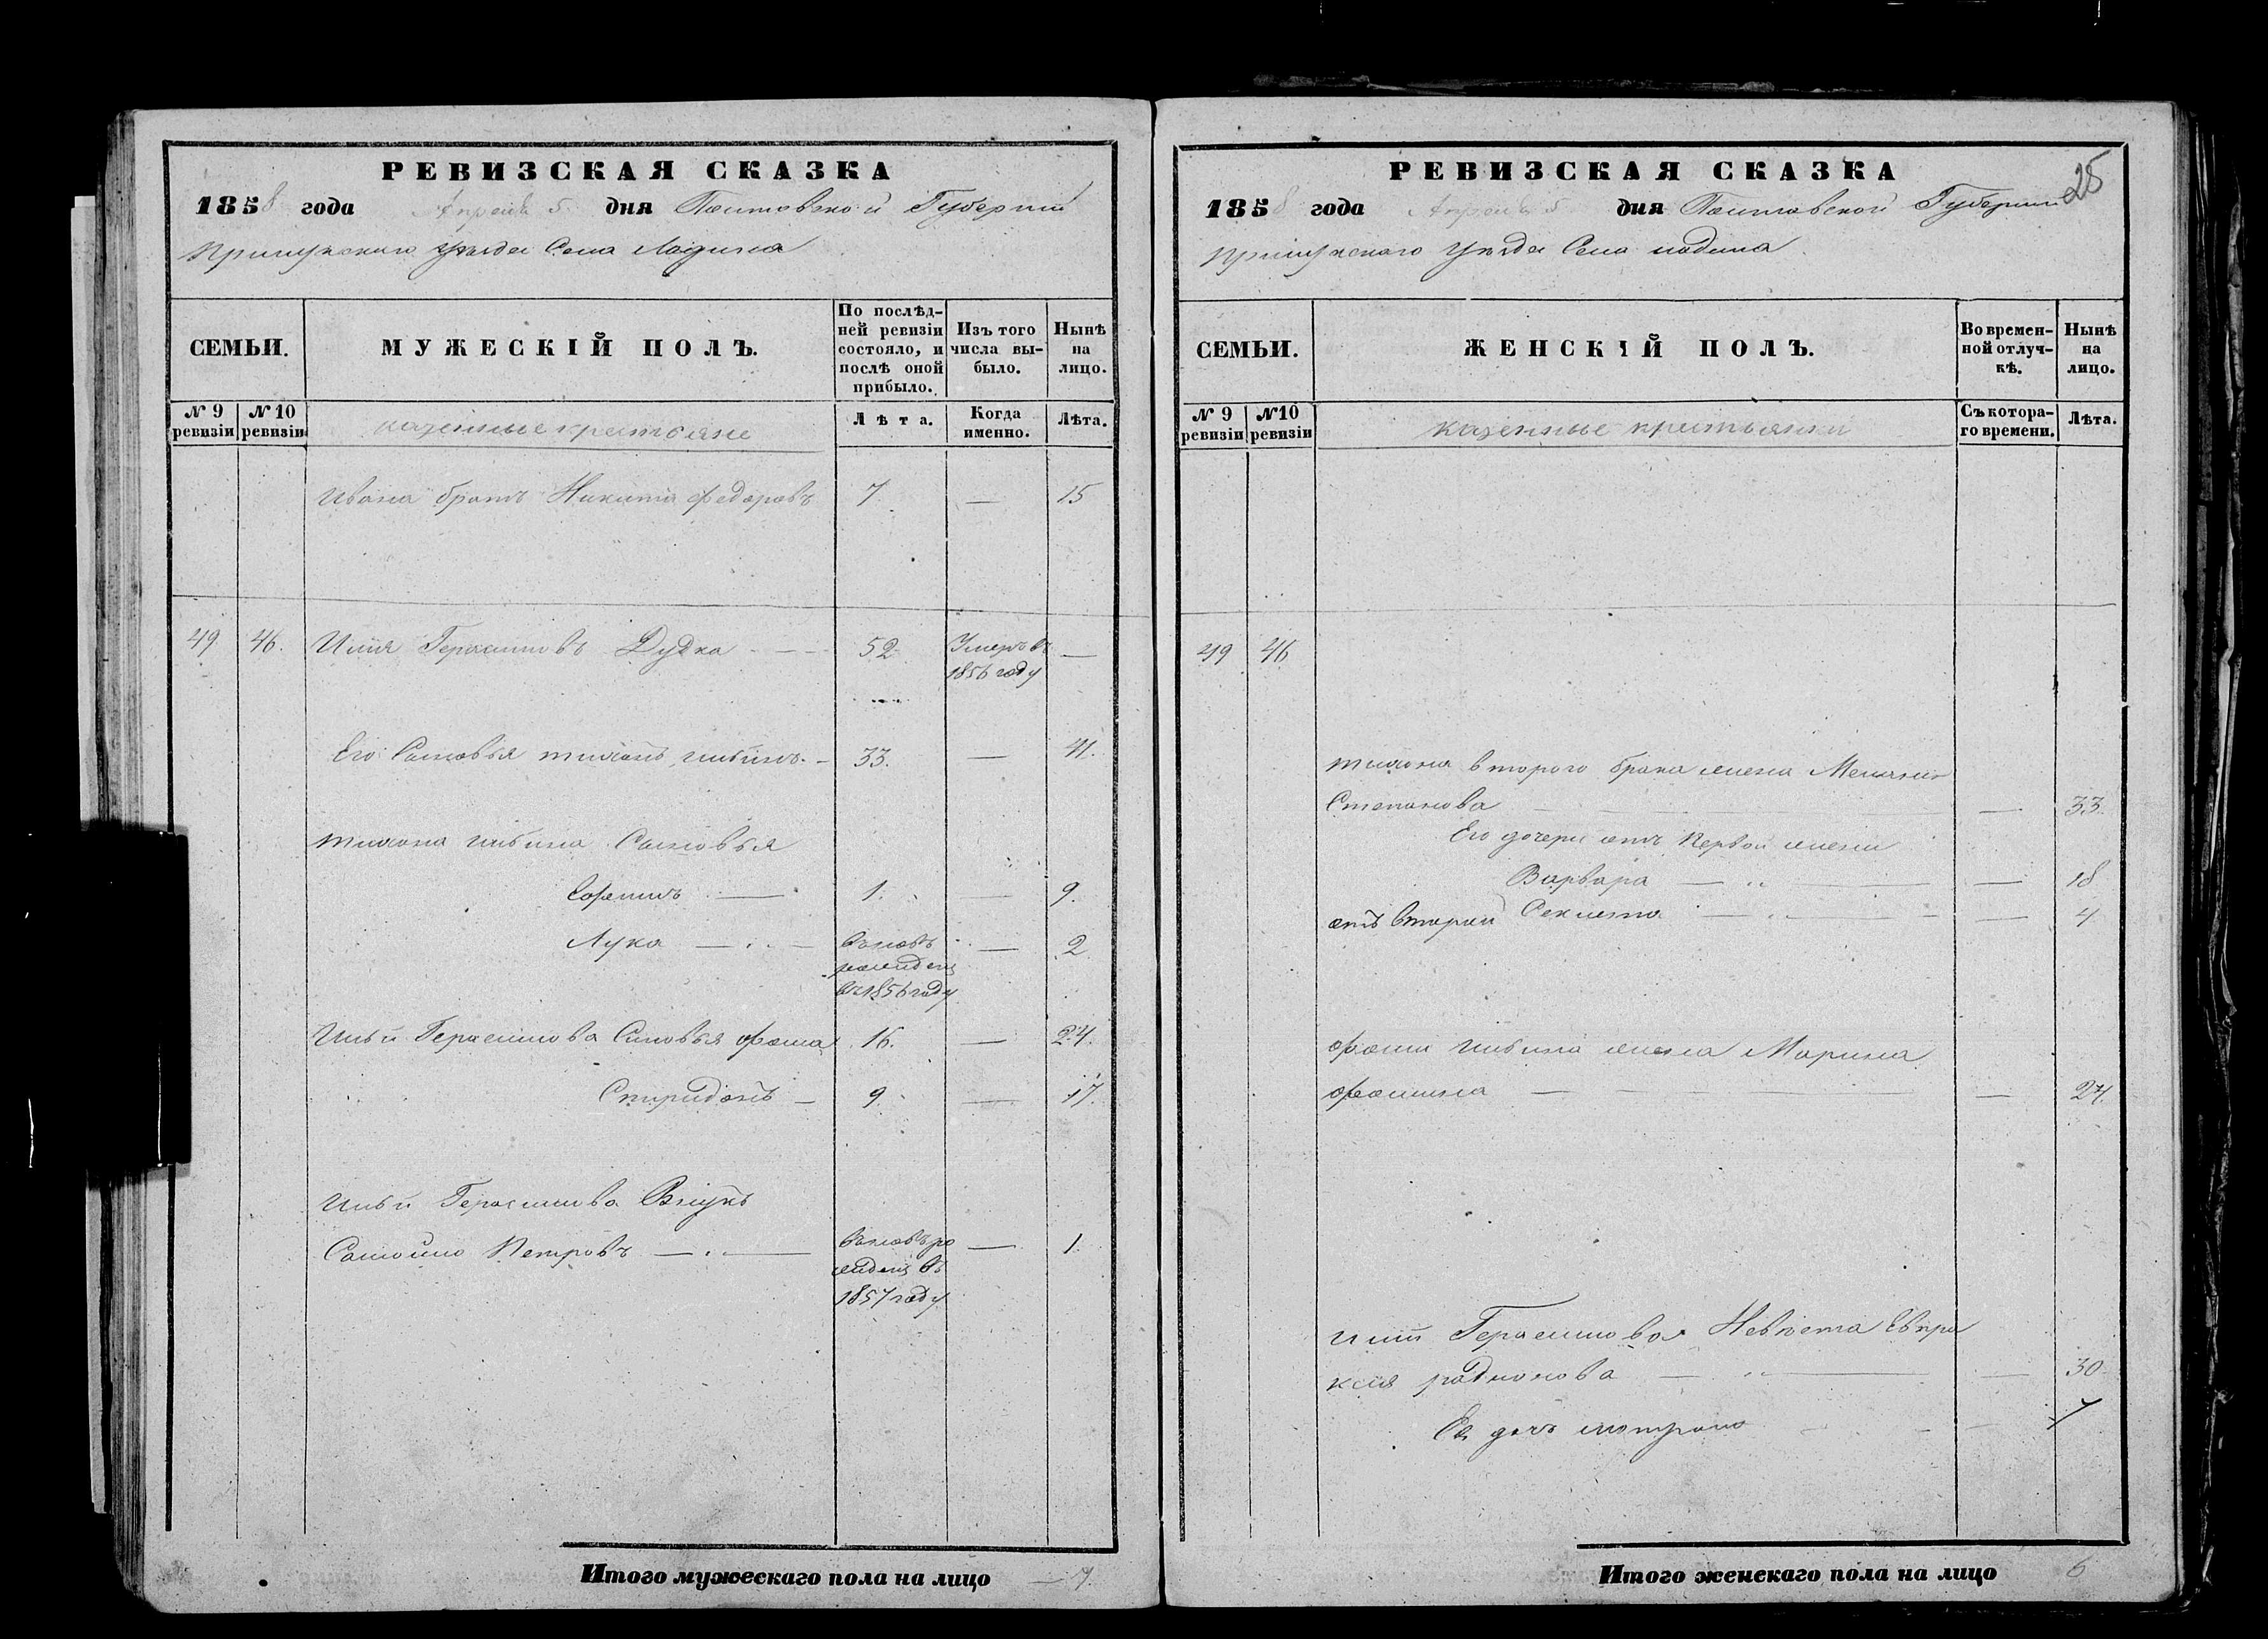 РЕВИЗСКАЯ СКАЗКА
1858 года Апреля 5 дня Полтавской Губернии
Прилукского уезда Села Ладина
СЕМЬИ.
МУЖЕСКІЙ ПОЛЪ.
По послѣд-
ней ревизіи
состояло, и
послѣ оной
прибыло.
Изъ того
числа вы-
было.
Нынѣ
на
лицо.
№ 9 ревизіи
№ 10 ревизіи
казенные крестьяне
Лѣта.
Когда
именно.
Лѣта.
Ивана братъ Никита Федоровъ 7 — 15
49 46. Илия Герасимовъ Дудка 52 Умеръ въ —
1856 году
Его Сыновья тимофей ильинъ 33. — 41.
Ильина Сыновья
1. — 9.
Лука — Вновь — 2
рожденъ
въ 1856 году
Ильи Герасимова Сыновья фома 16. — 24.
Спиридонъ — 9 — 17.
Ильи Герасимова Внукъ
Самойло Петровъ — Вновь ро — 1.
жденъ въ
1857 году
Итого мужескаго пола на лицо — 7.
РЕВИЗСКАЯ СКАЗКА 25
1858 года Апреля 5 дня Полтавской Губернии
Прилукского уѣзда Села ладина
СЕМЬИ.
ЖЕНСКІЙ ПОЛЪ.
Во времен-
ной отлуч-
кѣ.
Нынѣ
на
лицо.
№ 9 ревизіи
№10 ревизіи
казенные крестьянки
Съ котора-
го времени.
Лѣта.
49 46
второго брака жена Мелания
Степанова — 33.
Его дочери отъ Первой жены
Варвара — 18
отъ второй Феклета — 4
фомы ильина жена Марина
фомина — 24.
Герасимова Невѣста Евпра
ксия радионова — 30
Ея дочь мотрона — 7
Итого женскаго пола на лицо 6